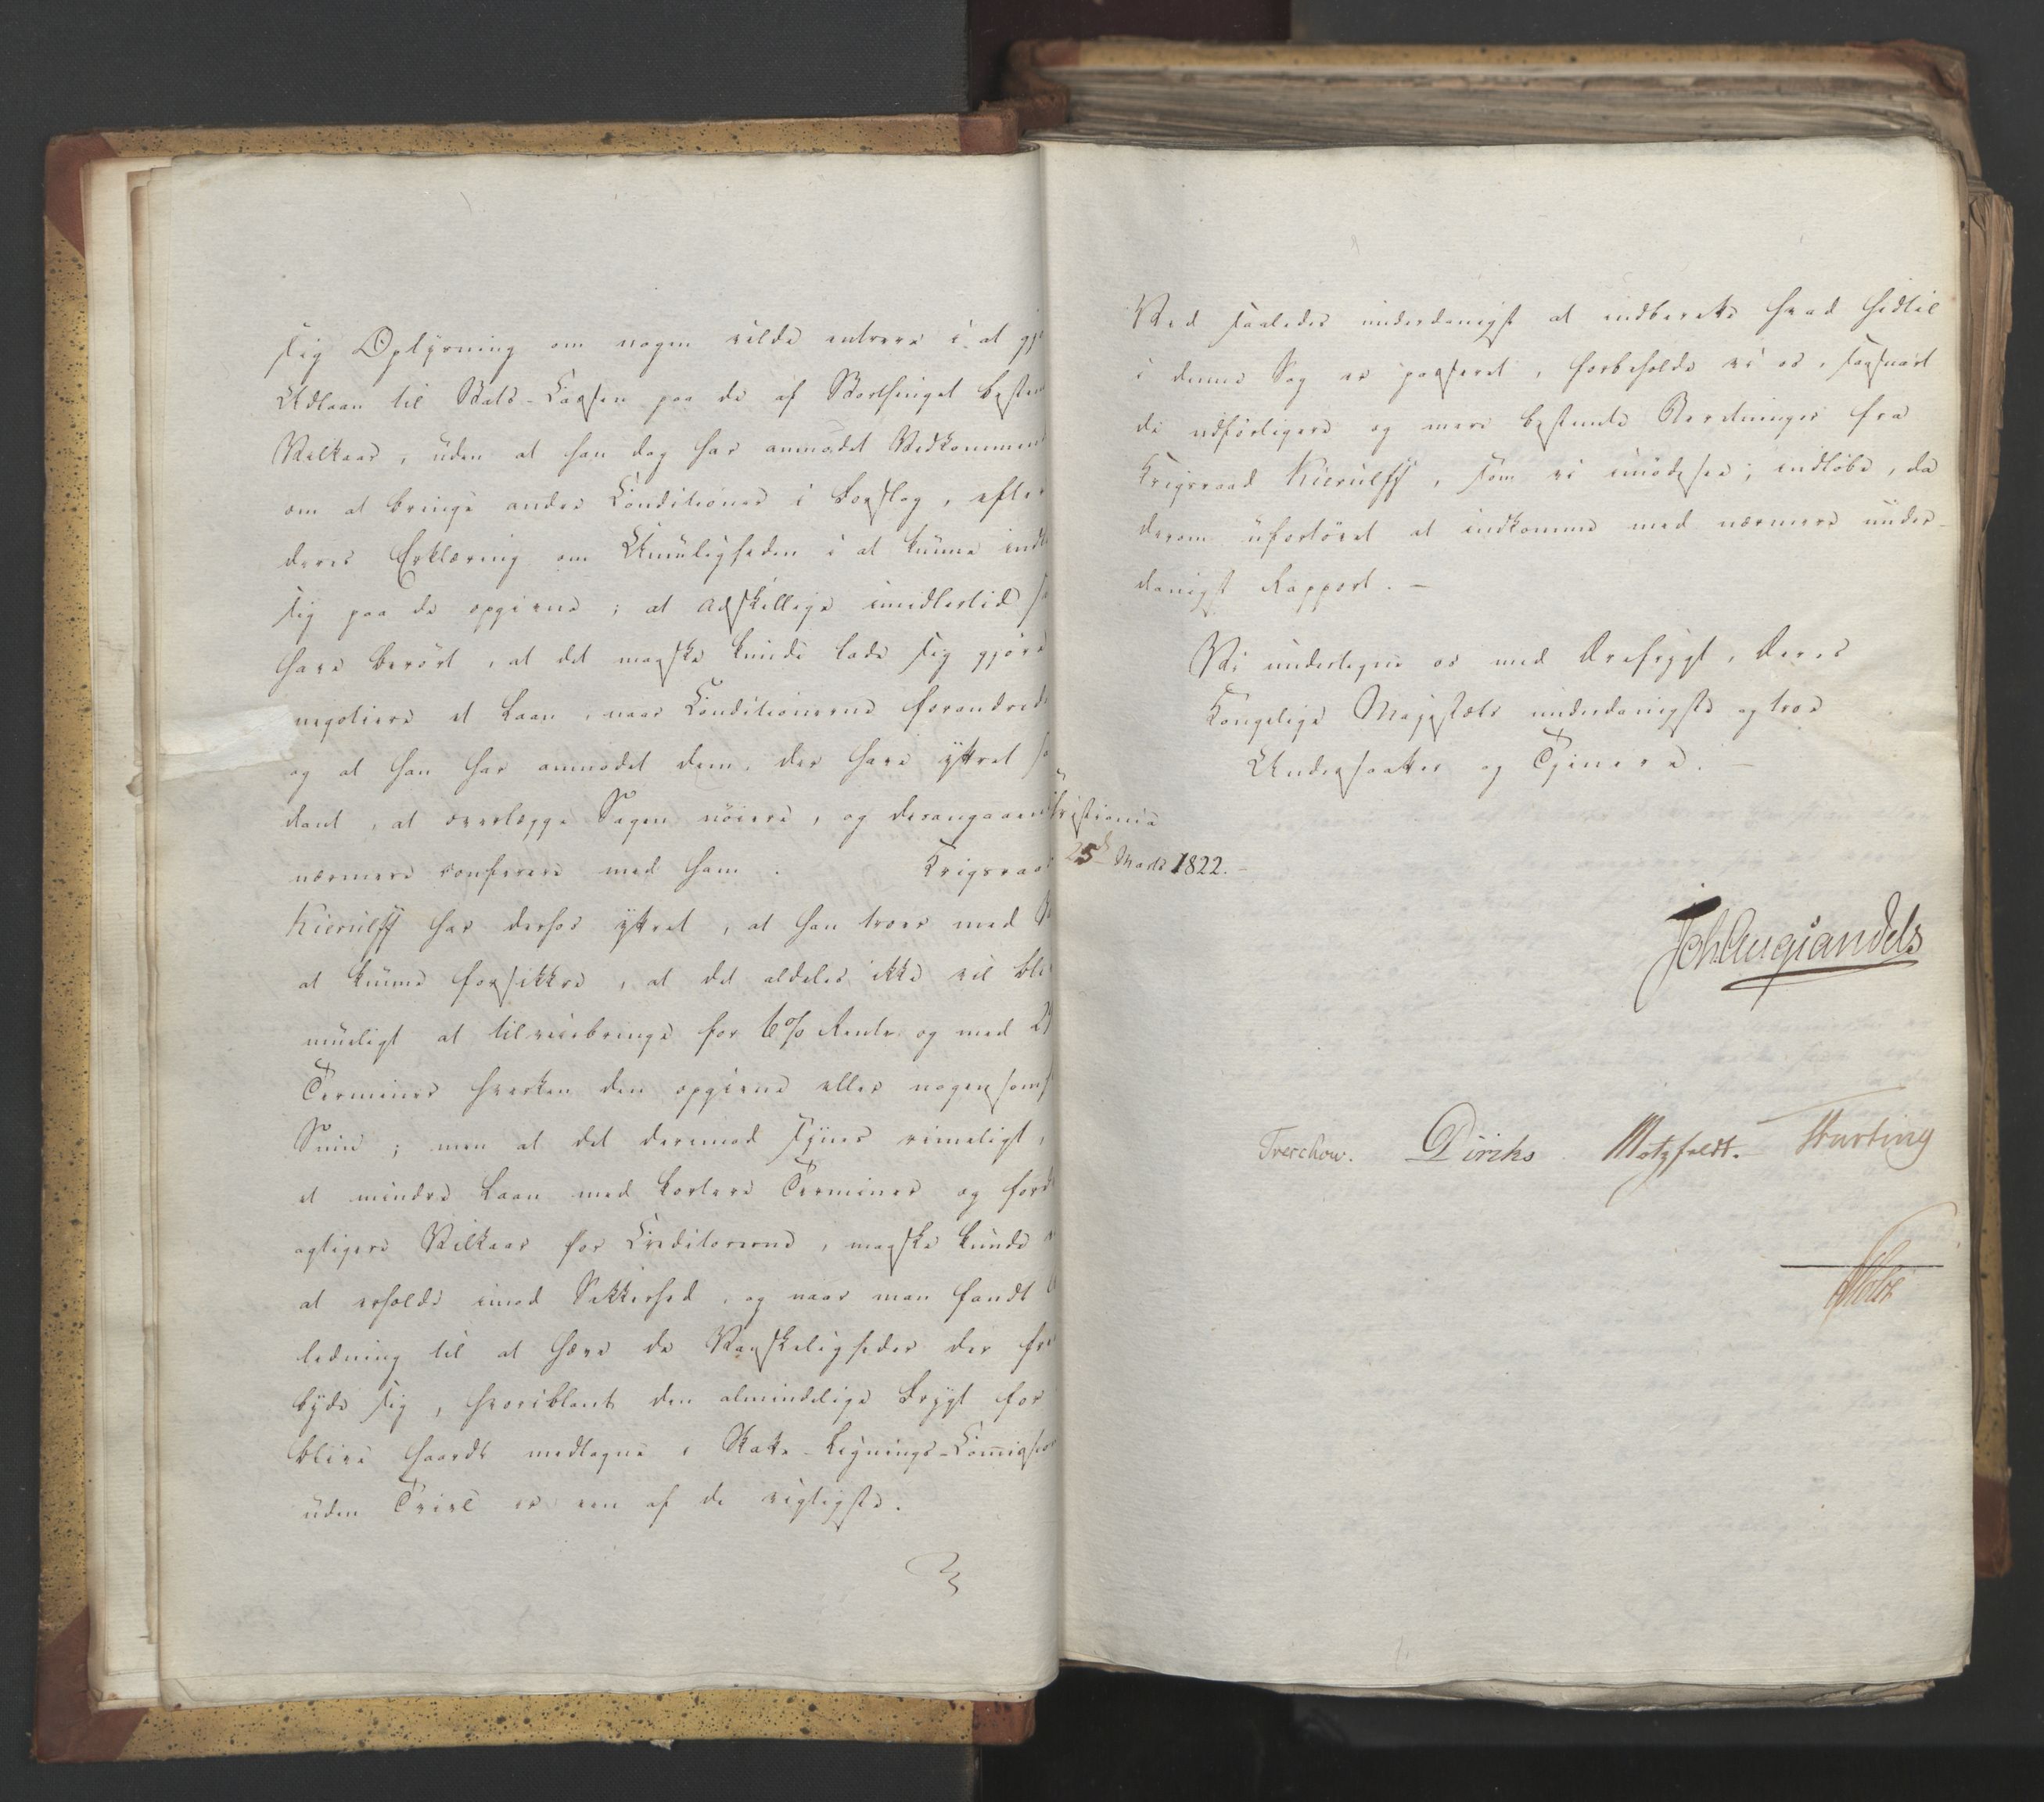 sig Oplysning om nogen vilde entrere i at gjø
Udlaan til Stats-Cassen paa de af Storthinget bestem
Vilkaar, uden at han dog har anmodet Vedkommend
om at bringe andre Conditioner i Forslag, efter
deres Erklæring om Umuligheden i at kunne indl
sig paa de opgivne; at adskillige imidlertid
have berørt, at det maaske kunde lade sig gjøre
negotiere et Laan, naar Conditionerne forandrede
og at han har anmodet dem, der have yttret saa
dant, at overlægge Sagen nøiere, og desangaaende
nærmere conferere med ham. Krigsraad
Kierulff har derhos yttret, at han troer med
at kunne forsikkre, at det aldeles ikke vil bliv
mueligt at tilveiebringe for 6% Rente og med 24
Terminer hverken den opgivne eller nogensomh
Sum; men at det derimod synes rimeligt,
et mindre Laan med kortere Terminer og ford
agtigere Vilkaar for Creditorerne, maaske kunde
at erholde imod Sikkerhed, og naar man fandt
ledning til at hæve de Vanskeligheder der fre
byde sig, hvoriblant den almindelige Frygt for
blive haardt medtagne i Skatte-Lignings-Comission
uden Tvivl er een af de vigtigste.
Ved saaledes underdanigst at indberette hvad hidtil
i denne Sag er passeret, forbeholde vi os, saasnart
de udførligere og mere bestemte Beretninger fra
Krigsraad Kierulff, som vi imødesee, indløbe, da
derom ufortøvet at indkomme med nærmere under-
danigst Rapport. —
Vi undertegne os med Ærefrygt, Deres
Kongelige Majestæts underdanigste og troe
Undersaatter og Tjenere. —
Christiania
25d Marts 1822. -
Joh. Aug. Sandels
Treschow. Diriks Motzfeldt. Hartvig
Holst